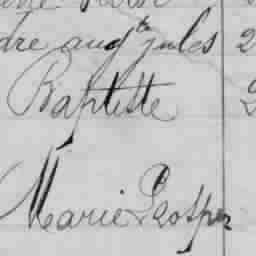 dre aug^te jules 2
Baptiste
Marie Prosper